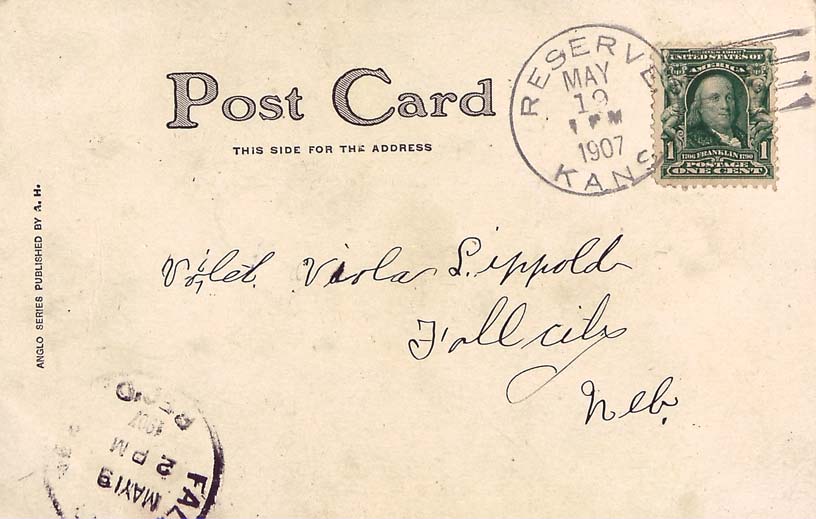 Post Card
THIS SIDE FOR THE ADDRESS
RESERVE
MAY
19
PM
1907
KANS
UNITED STATES OF
AMERICA
1 1706 FRANKLIN 1790 1
POSTAGE
ONE CENT
ANGLO SERIES PUBLISHED BY A. H.
Violet Viola Lippold
Fall city
Neb.
REC'D
1907
2 PM
MAY 19
FAL